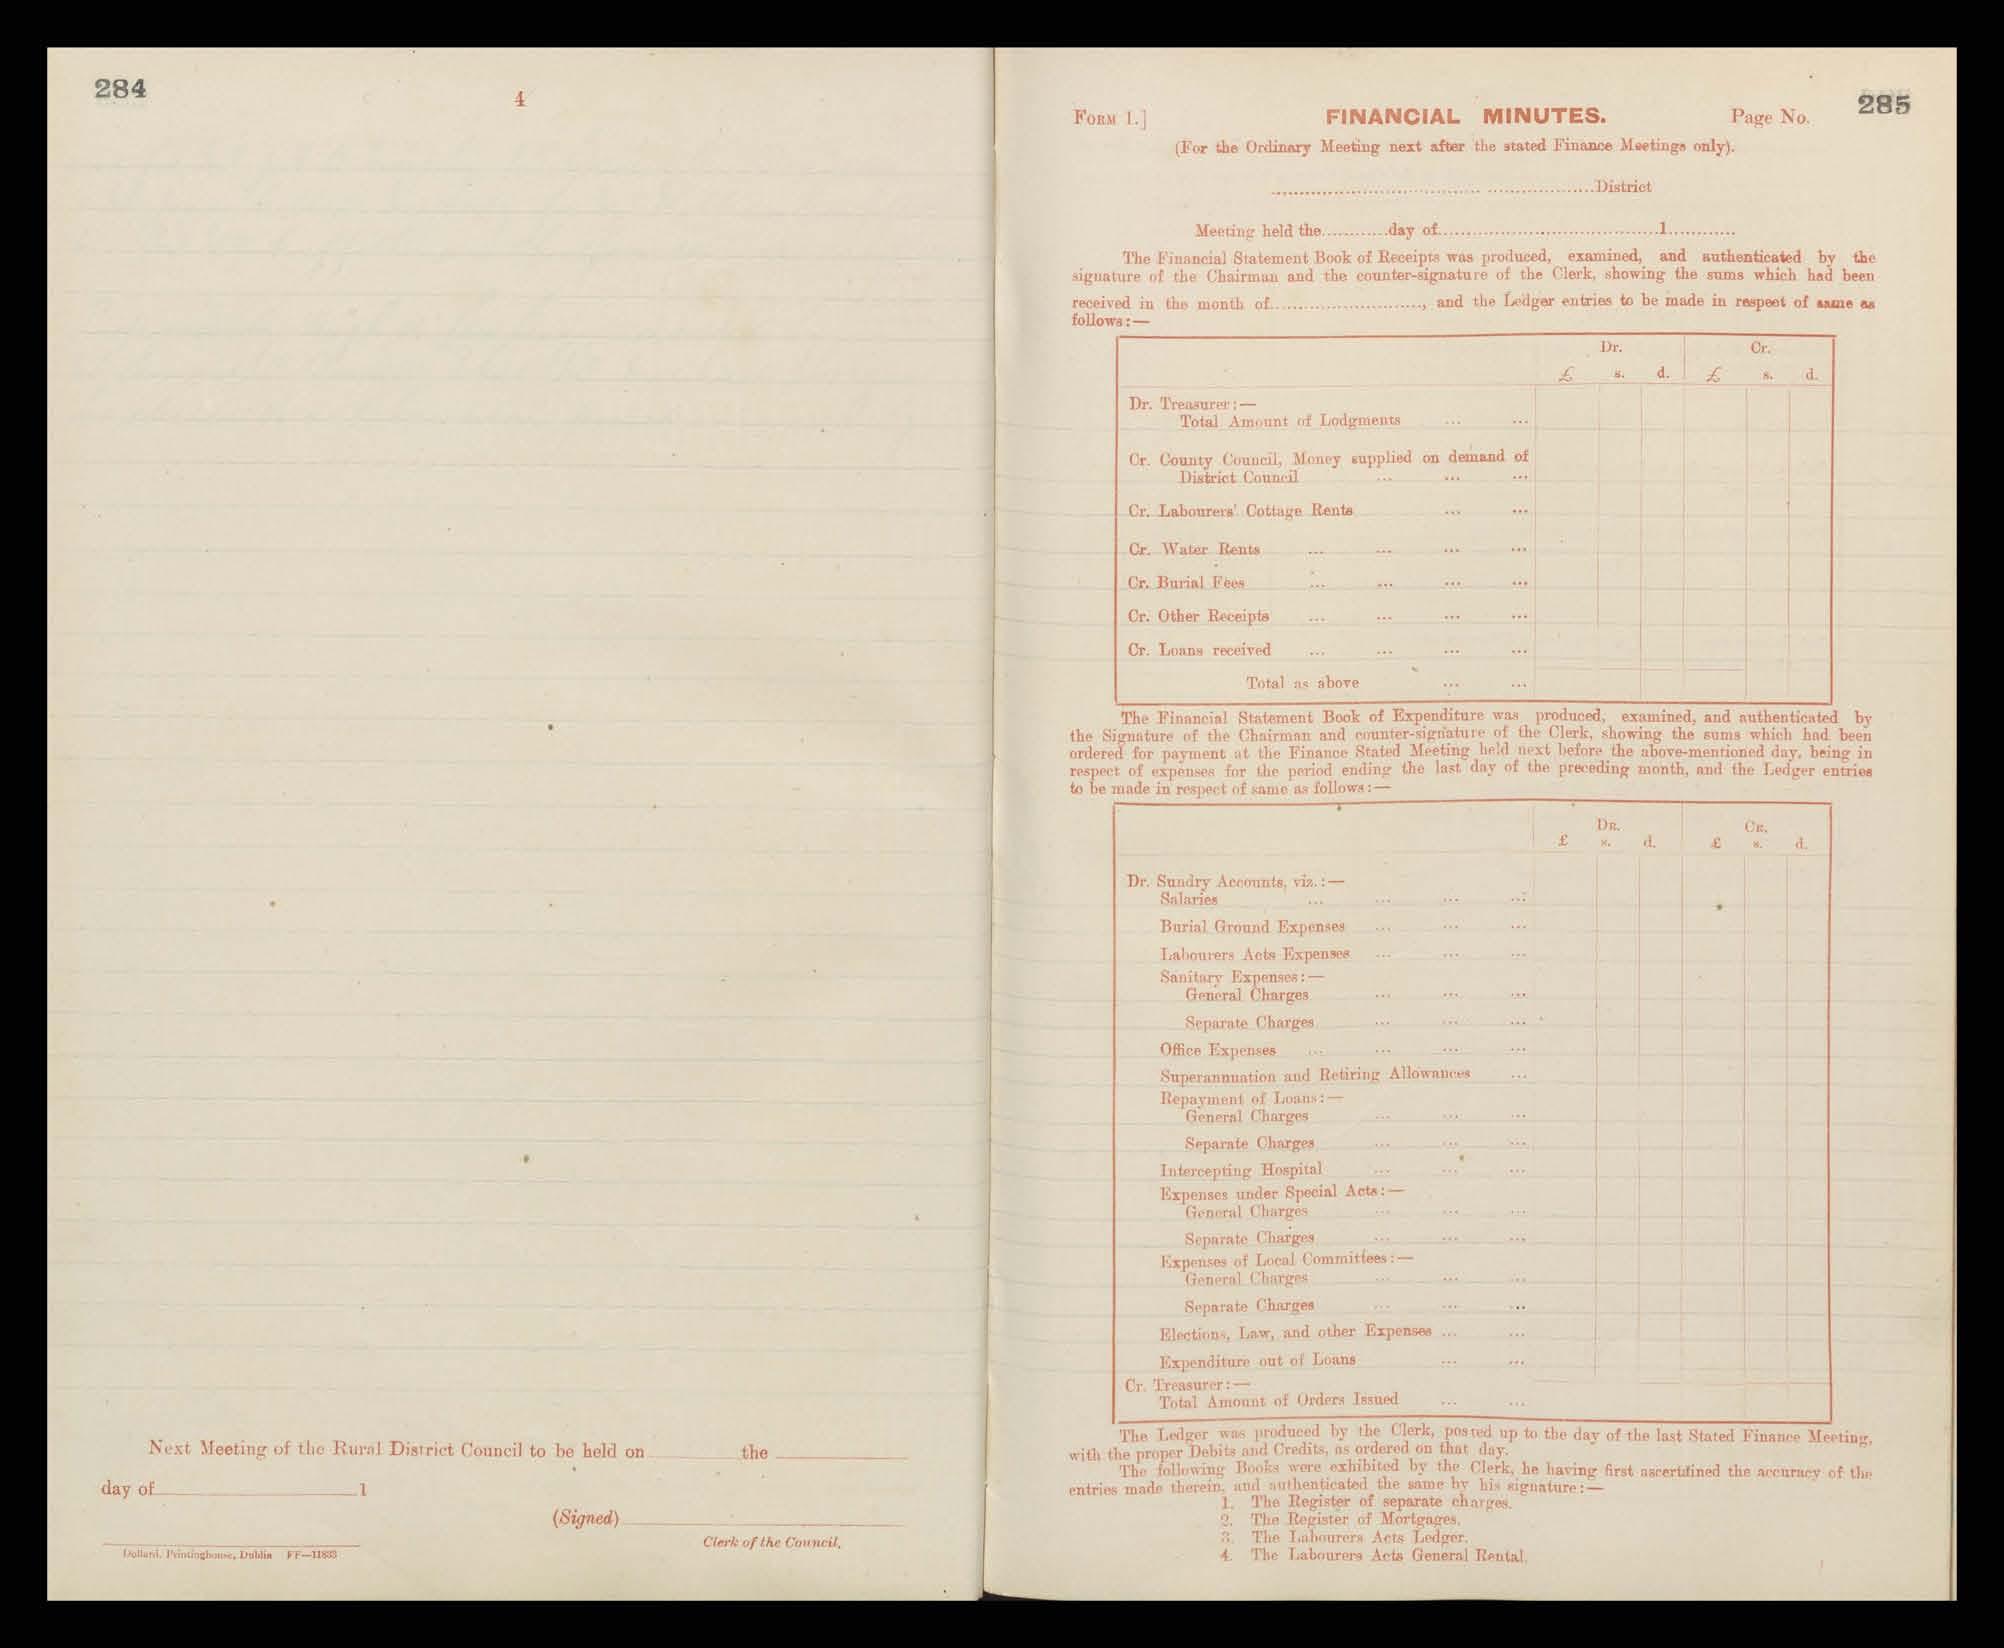 284
4
Next Meeting of the Rural District Council to be held on the
day of 1
(Signed)
Clerk of the Council.
Dollard, Printinghouse, Dublin FF—11833
285
FORM 1.] FINANCIAL MINUTES. Page No.
(For the Ordinary Meeting next after the stated Finance Meetings only).
District
Meeting held the............day of........................................1............
The Financial Statement Book of Receipts was produced, examined, and authenticated by the
signature of the Chairman and the counter-signature of the Clerk, showing the sums which had been
received in the month of..........................., and the Ledger entries to be made in respect of same as
follows:—
Dr. Cr.
£ s. d. £ s. d.
Dr. Treasurer:—
Total Amount of Lodgments ... ...
Cr. County Council, Money supplied on demand of
District Council ... ... ...
Cr. Labourers' Cottage Rents ... ...
Cr. Water Rents ... ... ... ...
Cr. Burial Fees ... ... ... ...
Cr. Other Receipts ... ... ... ...
Cr. Loans received ... ... ... ...
Total as above ... ...
The Financial Statement Book of Expenditure was produced, examined, and authenticated by
the Signature of the Chairman and counter-signature of the Clerk, showing the sums which had been
ordered for payment at the Finance Stated Meeting held next before the above-mentioned day, being in
respect of expenses for the period ending the last day of the preceding month, and the Ledger entries
to be made in respect of same as follows:—
DR. CR.
£ s. d. £ s. d.
Dr. Sundry Accounts, viz.:—
Salaries ... ... ... ...
Burial Ground Expenses ... ... ...
Labourers Acts Expenses ... ... ...
Sanitary Expenses:—
General Charges ... ... ...
Separate Charges ... ... ...
Office Expenses ... ... ... ...
Superannuation and Retiring Allowances ...
Repayment of Loans:—
General Charges ... ... ...
Separate Charges ... ... ...
Intercepting Hospital ... ... ...
Expenses under Special Acts:—
General Charges ... ... ...
Separate Charges ... ... ...
Expenses of Local Committees:—
General Charges ... ... ...
Separate Charges ... ... ...
Elections, Law, and other Expenses ... ...
Expenditure out of Loans ... ...
Cr. Treasurer:—
Total Amount of Orders Issued ... ...
The Ledger was produced by the Clerk, posted up to the day of the last Stated Finance Meeting,
with the proper Debits and Credits, as ordered on that day.
The following Books were exhibited by the Clerk, he having first ascertained the accuracy of the
entries made therein, and authenticated the same by his signature:—
1. The Register of separate charges.
2. The Register of Mortgages.
3. The Labourers Acts Ledger.
4. The Labourers Acts General Rental.